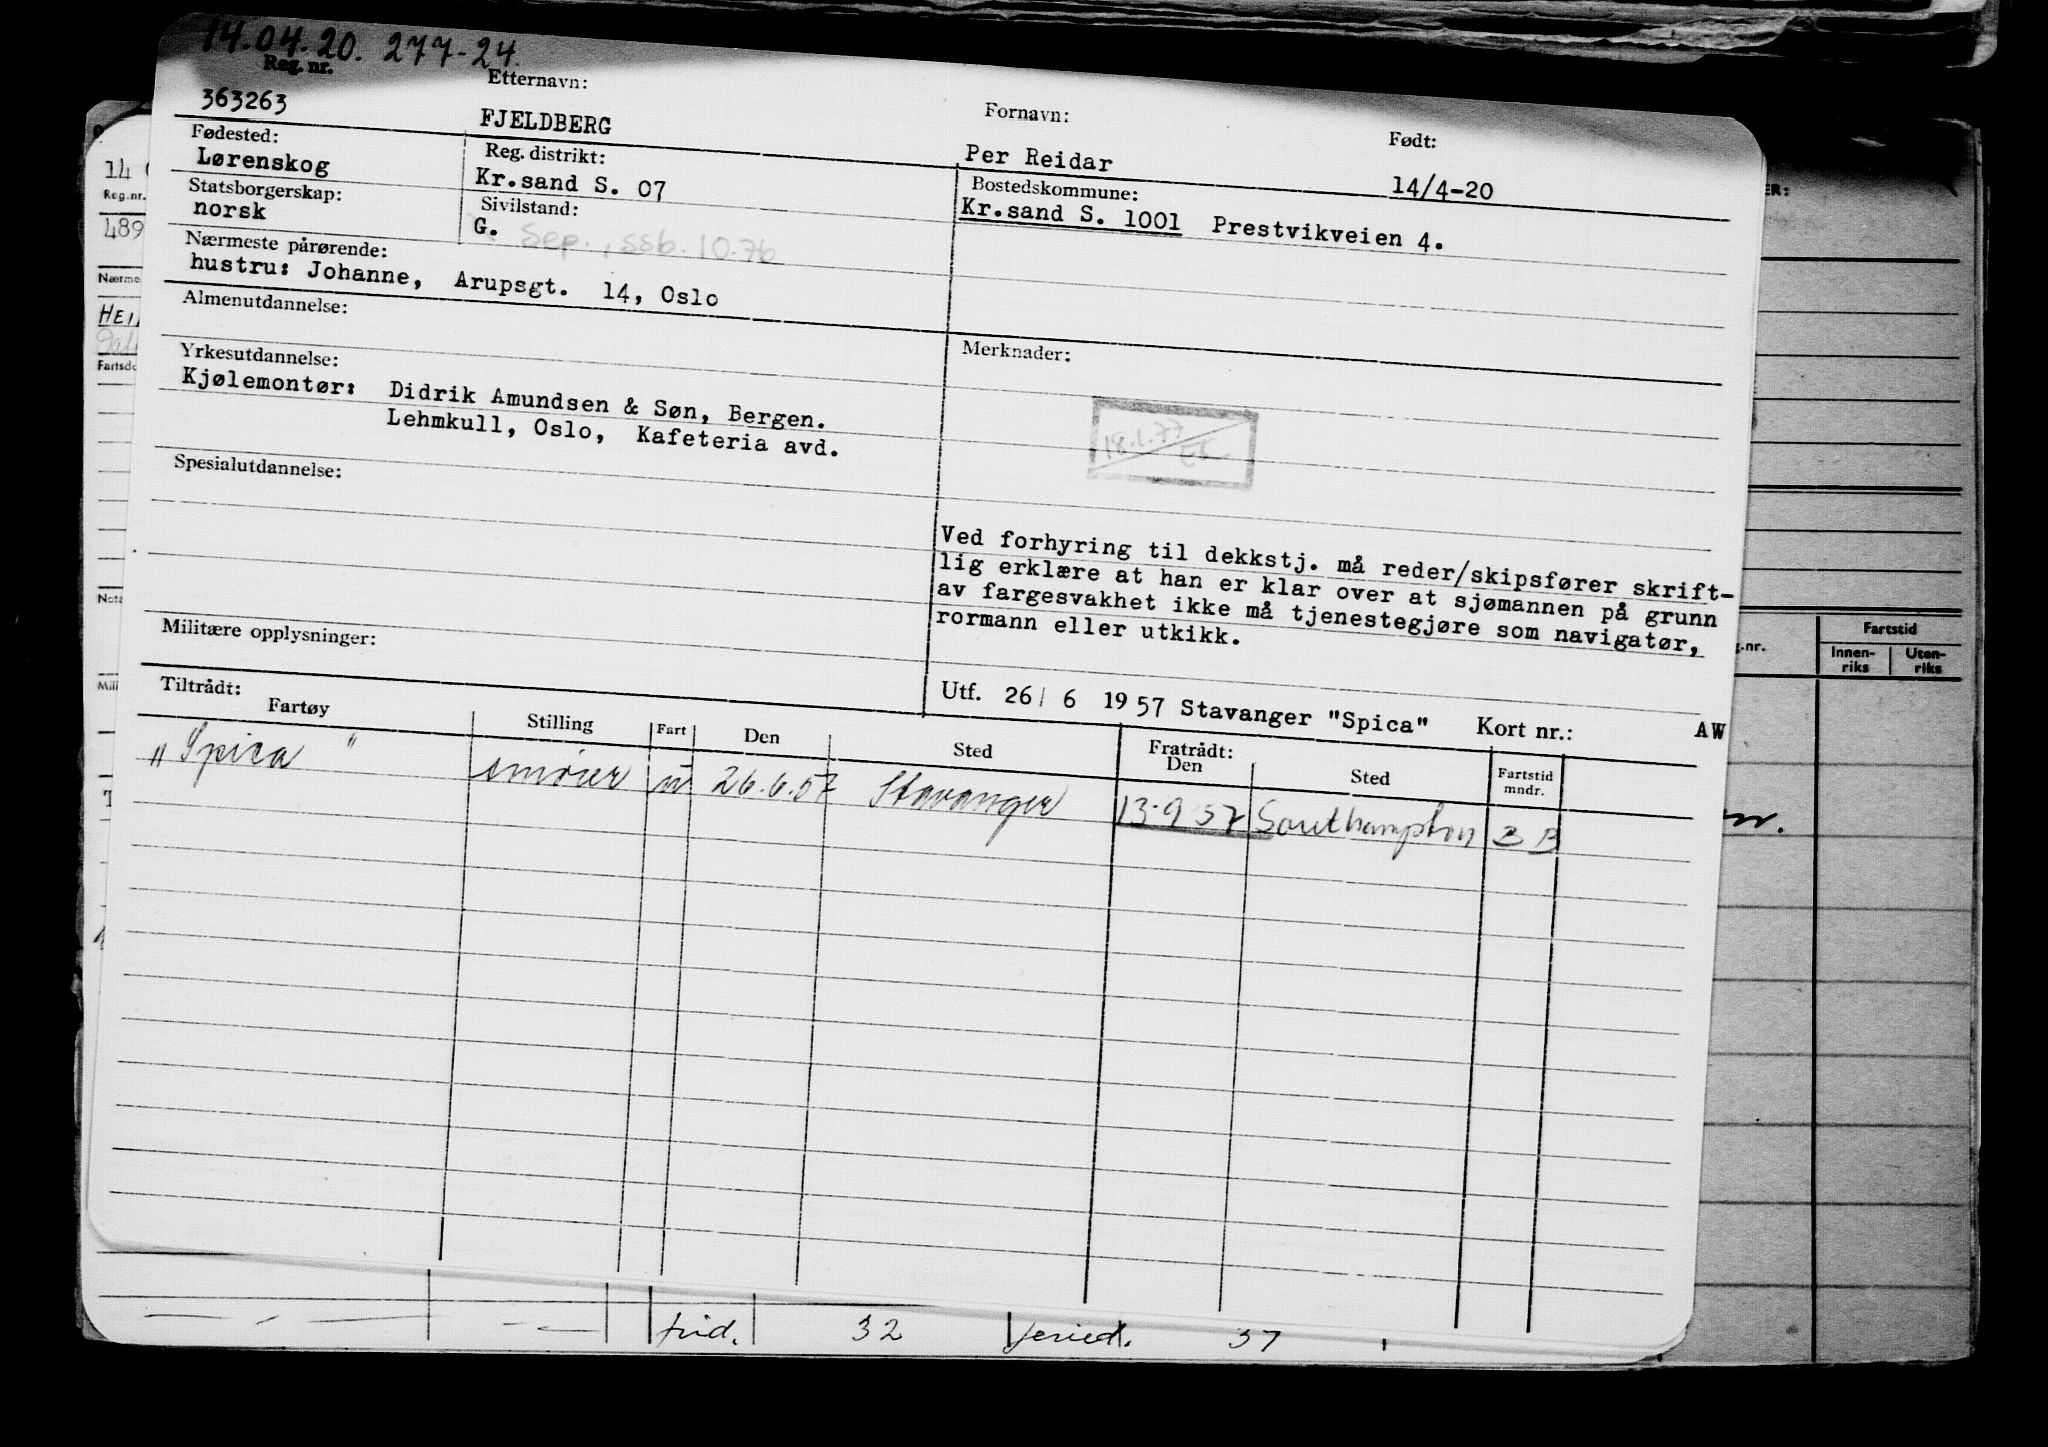 14.04.20. 277-24.
Reg. nr. Etternavn: Fornavn: Født:
363263 FJELDBERG Per Reidar 14/4-20
Fødested: Reg. distrikt: Bostedskommune:
Lørenskog Kr.sand S. 07 Kr.sand S. 1001 Prestvikveien 4.
Statsborgerskap: Sivilstand:
norsk G. Sep., ssb. 10.76
Nærmeste pårørende:
hustru: Johanne, Arupsgt. 14, Oslo
Almenutdannelse:
Merknader:
Yrkesutdannelse:
Kjølemontør: Didrik Amundsen & Søn, Bergen.
Lehmkull, Oslo, Kafeteria avd.
18.1.77
Spesialutdannelse:
Ved forhyring til dekkstj. må reder/skipsfører skrift-
lig erklære at han er klar over at sjømannen på grunn
av fargesvakhet ikke må tjenestegjøre som navigatør,
rormann eller utkikk.
Militære opplysninger:
Utf. 26/ 6 1957 Stavanger "Spica" Kort nr.: AW
Tiltrådt: Fratrådt:
Fartøy Stilling Fart Den Sted Den Sted Fartstid
mndr.
"Spica" smører u 26.6.57 Stavanger 13-9 57 Southampton
14
Reg.nr.
489
Nærme
HEI
Fartsdo
Nota
Mili
ER:
g.nr. Fartstid
Innen-
riks Uten-
riks
32 37